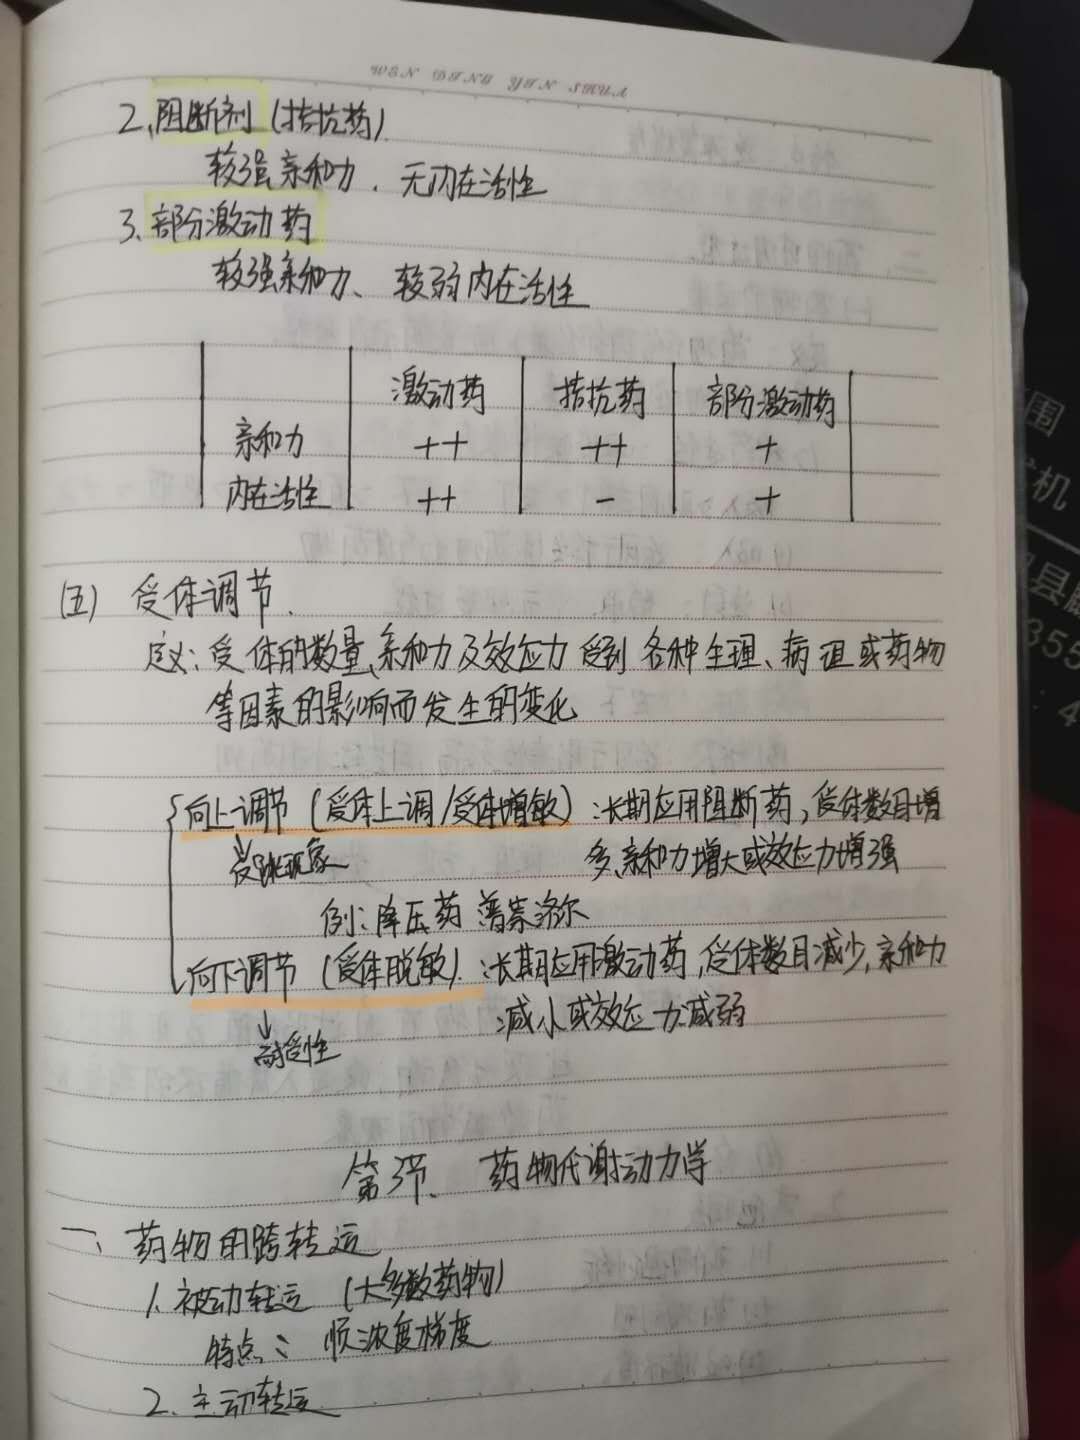 WEN DING YIN SHUA
2、阻断剂（拮抗药）
较强亲和力、无内在活性
3、部分激动药
较强亲和力、较弱内在活性
激动药 拮抗药 部分激动药
亲和力 ++ ++ +
内在活性 ++ - +
(五) 受体调节
定义：受体的数量、亲和力及效应力受到各种生理、病理或药物
等因素的影响而发生的变化
向上调节（受体上调/受体增敏）：长期应用阻断药，受体数目增
多、亲和力增大或效应力增强
反跳现象
例：降压药 普萘洛尔
向下调节（受体脱敏）：长期应用激动药，受体数目减少，亲和力
减小或效应力减弱
耐受性
第3节、药物代谢动力学
一、药物的跨转运
1、被动转运（大多数药物）
特点：顺浓度梯度
2、主动转运
围
机
县
355
: 4